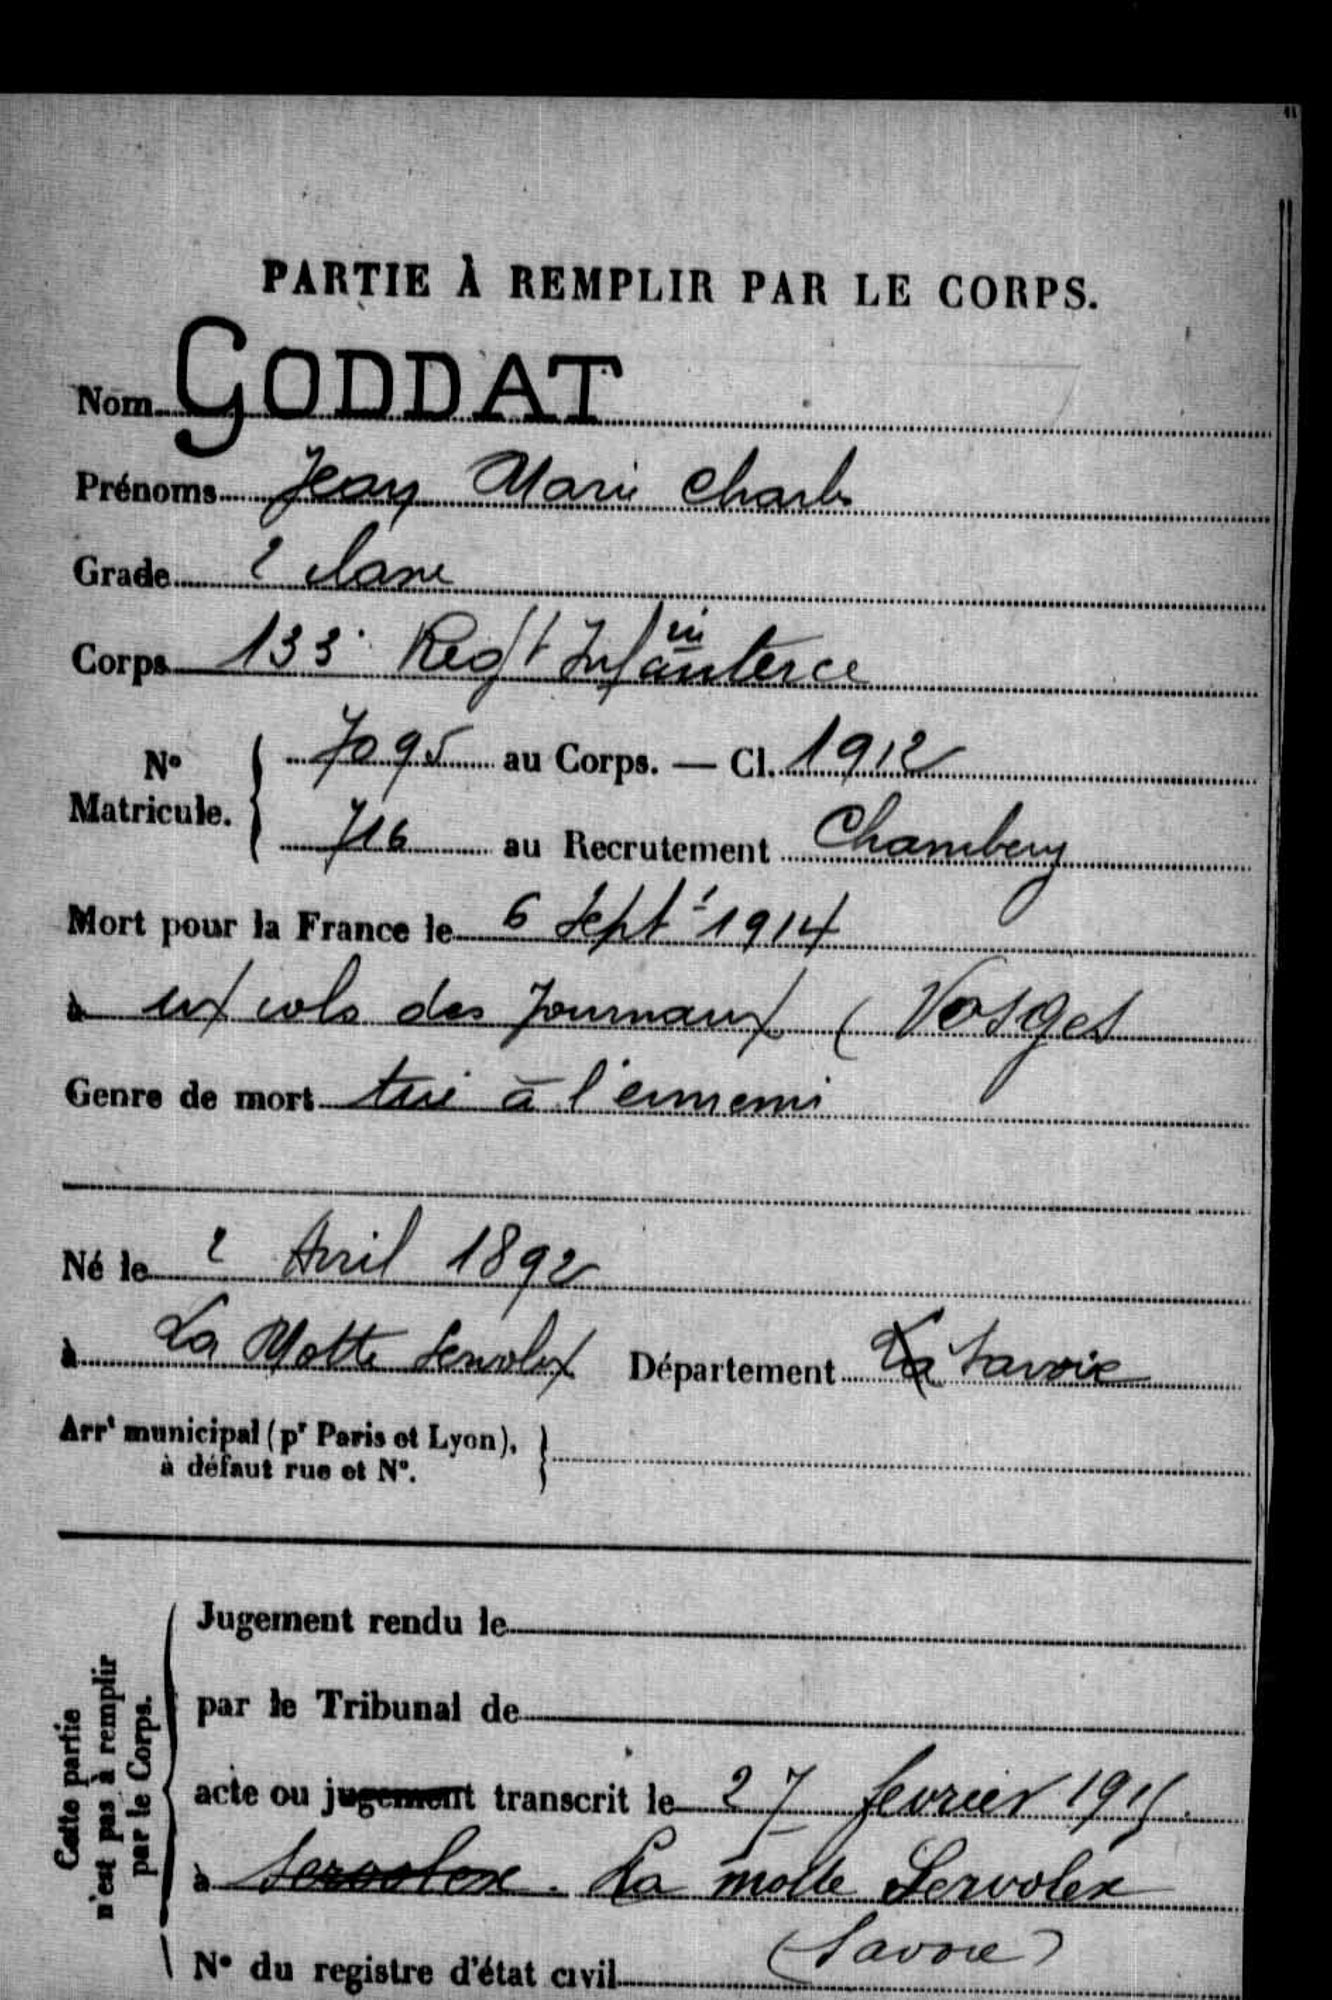 PARTIE À REMPLIR PAR LE CORPS.
Nom GODDAT
Prénoms Jean Marie Charles
Grade 2 classe
Corps 133e Regt Infanterie
N° Matricule. 7095 au Corps. — Cl. 1912
716 au Recrutement Chambery
Mort pour la France le 6 Sept 1914
à ux cols des Journaux (Vosges
Genre de mort tué à l'ennemi
Né le 2 Avril 1892
à La Motte Servolex Département La Savoie
Arrt municipal (pr Paris et Lyon),
à défaut rue et N°.
Cette partie n'est pas à remplir par le Corps.
Jugement rendu le
par le Tribunal de
acte ou jugement transcrit le 27 fevrier 1915.
à Servolex. La motte Servolex
(Savoie)
N° du registre d'état civil